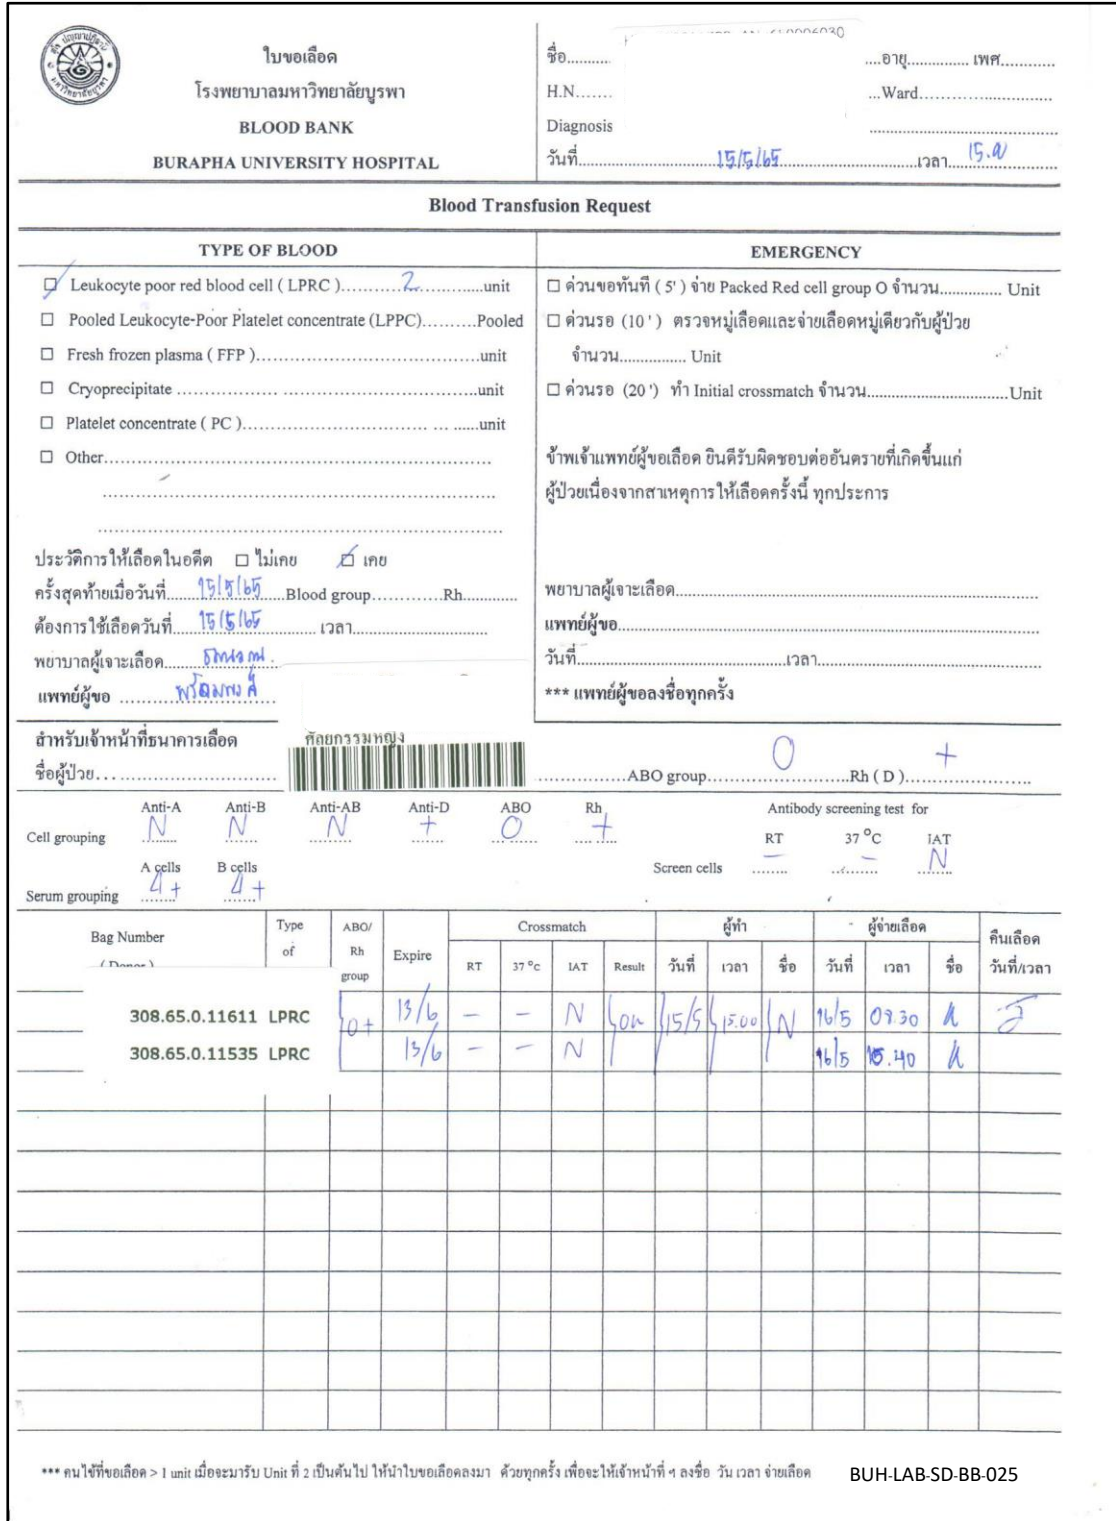 ใบขอเลือด
โรงพยาบาลมหาวิทยาลัยบูรพา
BLOOD BANK
BURAPHA UNIVERSITY HOSPITAL
ชื่อ........... ....อายุ............... เพศ............
H.N....... ...Ward..............................
Diagnosis ........................................
วันที่..............................15/5/65..............................เวลา 15.ข
Blood Transfusion Request
TYPE OF BLOOD
☑ Leukocyte poor red blood cell ( LPRC )...........2..............unit
☐ Pooled Leukocyte-Poor Platelet concentrate (LPPC)..........Pooled
☐ Fresh frozen plasma ( FFP ).............................................unit
☐ Cryoprecipitate ..................... .........................................unit
☐ Platelet concentrate ( PC ).................................... ... ......unit
☐ Other...........................................................................
ประวัติการให้เลือดในอดีต ☐ ไม่เคย ☑ เคย
ครั้งสุดท้ายเมื่อวันที่.......15/5/65......Blood group..............Rh............
ต้องการใช้เลือดวันที่.....15/5/65............ เวลา...........................
พยาบาลผู้เจาะเลือด..........
แพทย์ผู้ขอ ..........
EMERGENCY
☐ ด่วนขอทันที ( 5' ) จ่าย Packed Red cell group O จำนวน............... Unit
☐ ด่วนรอ (10 ' ) ตรวจหมู่เลือดและจ่ายเลือดหมู่เดียวกับผู้ป่วย
จำนวน................ Unit
☐ ด่วนรอ (20 ' ) ทำ Initial crossmatch จำนวน...................................Unit
ข้าพเจ้าแพทย์ผู้ขอเลือด ยินดีรับผิดชอบต่ออันตรายที่เกิดขึ้นแก่
ผู้ป่วยเนื่องจากสาเหตุการให้เลือดครั้งนี้ ทุกประการ
พยาบาลผู้เจาะเลือด..........................................................
แพทย์ผู้ขอ..........................................................
วันที่.....................................................เวลา..........................................
*** แพทย์ผู้ขอลงชื่อทุกครั้ง
สำหรับเจ้าหน้าที่ธนาคารเลือด ศัลยกรรมหญิง
ชื่อผู้ป่วย............................ ......................ABO group..........O..........Rh ( D )......+..............
Anti-A Anti-B Anti-AB Anti-D ABO Rh Antibody screening test for
Cell grouping N N N + O + RT 37 °C IAT
A cells B cells Screen cells - - N
Serum grouping 4+ 4+
Bag Number Type of ABO/ Rh group Expire Crossmatch ผู้ทำ ผู้จ่ายเลือด คืนเลือด วันที่/เวลา
RT 37 °c IAT Result วันที่ เวลา ชื่อ วันที่ เวลา ชื่อ
308.65.0.11611 LPRC O+ 13/6 - - N 15/5 15.00 N 16/5 09.30
308.65.0.11535 LPRC 13/6 - - N 16/5 15.40
*** คนไข้ที่ขอเลือด > 1 unit เมื่อจะมารับ Unit ที่ 2 เป็นต้นไป ให้นำใบขอเลือดลงมา ด้วยทุกครั้ง เพื่อจะให้เจ้าหน้าที่ ฯ ลงชื่อ วัน เวลา จ่ายเลือด BUH-LAB-SD-BB-025